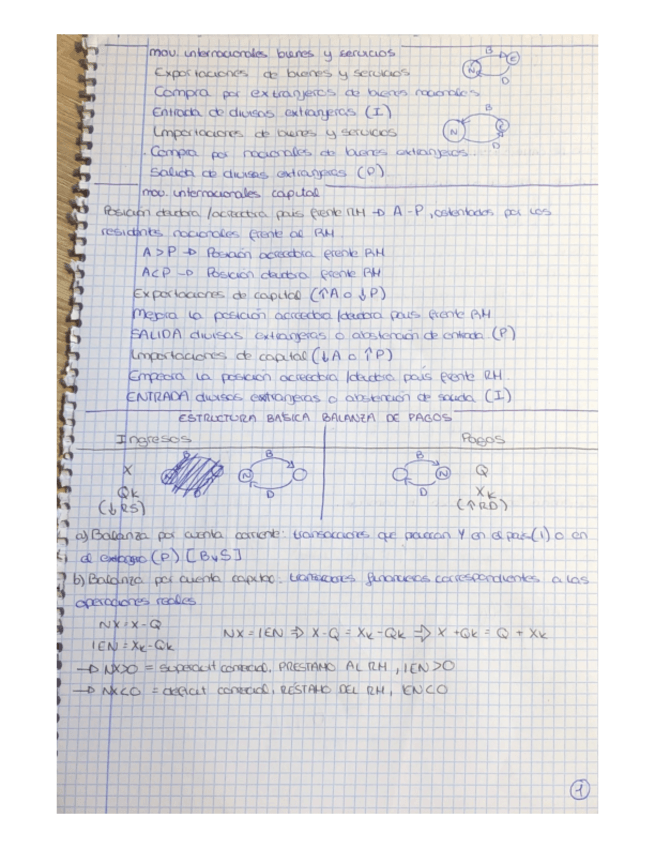 mov. internacionales bienes y servicios
B
N
E
D
Exportaciones de bienes y servicios
Compra por extranjeros de bienes nacionales
Entrada de divisas extranjeras (I)
Importaciones de bienes y servicios
B
N
D
Compra por nacionales de bienes extranjeros
Salida de divisas extranjeras (P)
mov. internacionales capital
Posición deudora/acreedora país frente RM → A-P, ostentados por los
residentes nacionales frente al RM
A>P → Posición acreedora frente RM
A<P → Posición deudora frente RM
Exportaciones de capital (↑A o ↓P)
Mejora la posición acreedora/deudora país frente RM
SALIDA divisas extranjeras o abstención de entrada (P)
Importaciones de capital (↓A o ↑P)
Empeora la posición acreedora/deudora país frente RM
ENTRADA divisas extranjeras o abstención de salida (I)
ESTRUCTURA BÁSICA BALANZA DE PAGOS
Ingresos Pagos
X
B
N
D
B
N
D
Q
Qk Xk
(↓RS) (↑RD)
a) Balanza por cuenta corriente: transacciones que Y en el país (I) o en
el (P) [ByS]
b) Balanza por cuenta capital: transacciones financieras correspondientes a las
operaciones reales
NX = X-Q
NX = IEN ⇒ X-Q = Xk-Qk ⇒ X+Qk = Q+Xk
IEN = Xk-Qk
→ NX>0 = superávit comercial, PRESTAMO AL RM, IEN>0
→ NX<0 = déficit comercial, RESTAMO DEL RM, IEN<0
1